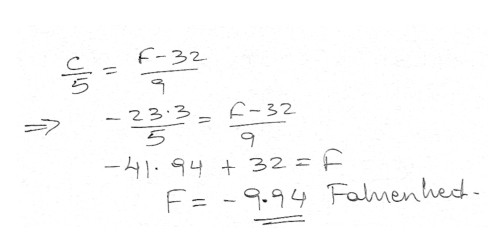 C/5 = F-32/9
⇒ -23.3/5 = F-32/9
-41.94 + 32 = F
F = -9.94 Fahrenheit.